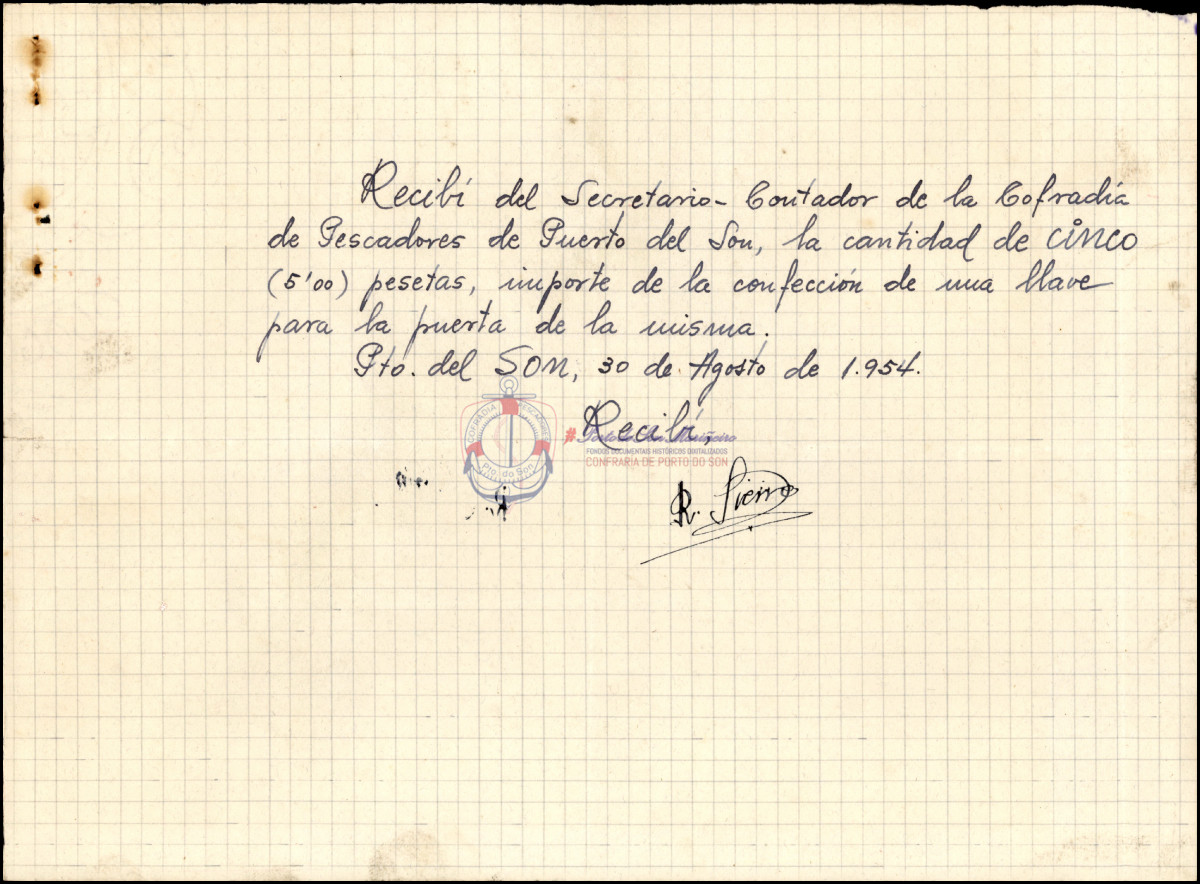 Recibí del Secretario-Contador de la Cofradía
de Pescadores de Puerto del Son, la cantidad de CINCO
(5'00) pesetas, importe de la confección de una llave
para la puerta de la misma.
Pto. del SON, 30 de Agosto de 1.954.
Recibí,
COFRADIA PESCADORES
Pto. do Son
#Porto do Son Mariñeiro
FONDOS DOCUMENTAIS HISTÓRICOS DIXITALIZADOS
CONFRARÍA DE PORTO DO SON
R. Sieira